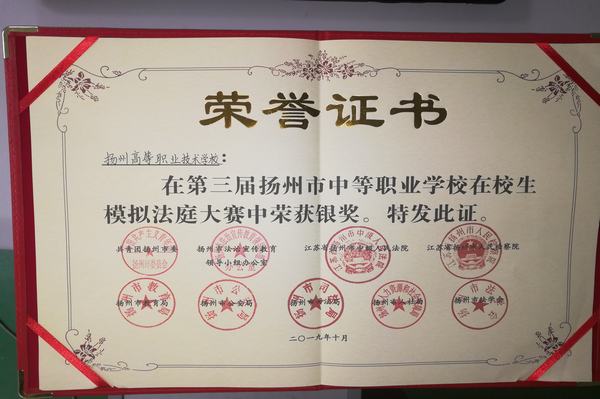 荣誉证书
扬州高等职业技术学校：
在第三届扬州市中等职业学校在校生
模拟法庭大赛中荣获银奖。特发此证。
共青团扬州市委 扬州市法治宣传教育 江苏省扬州市中级人民法院 江苏省扬州市人民检察院
领导小组办公室
扬州市教育局 扬州市公安局 扬州市司法局 扬州市人社局 扬州市法学会
二〇一九年十月